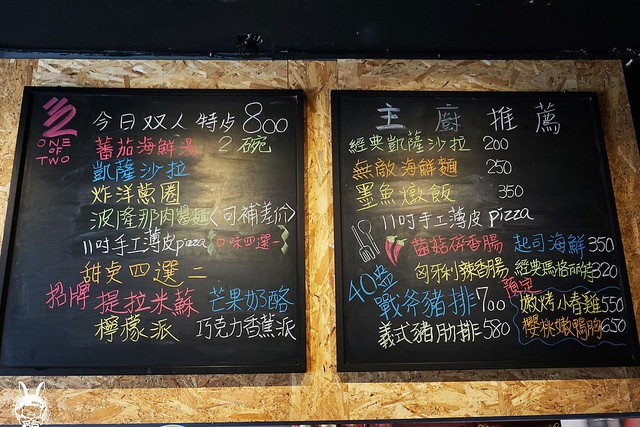 ONE
OF
TWO
今日双人 特歺 800
蕃茄海鮮湯 2碗
凱薩沙拉
炸洋蔥圈
波隆那肉醬麵〈可補差价〉
11吋手工薄皮pizza 口味四選一
甜臾四選二
招牌 提拉米蘇 芒果奶酪
檸檬派 巧克力香蕉派
主廚推薦
經典凱薩沙拉 200
無敵海鮮麵 250
墨魚燉飯 350
11吋手工薄皮 Pizza
菌菇碎香腸 起司海鮮350
匈牙利辣香腸 經典瑪格丽特320
40盎
戰斧豬排700
義式豬肋排580
預定
嫩烤小春雞550
櫻桃嫩鴨胸650